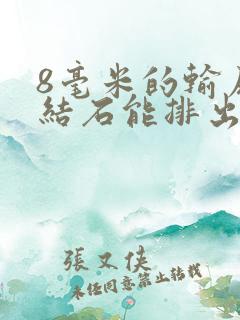 8毫米的輸
結石能排出
張又俠
未经同意禁止转载